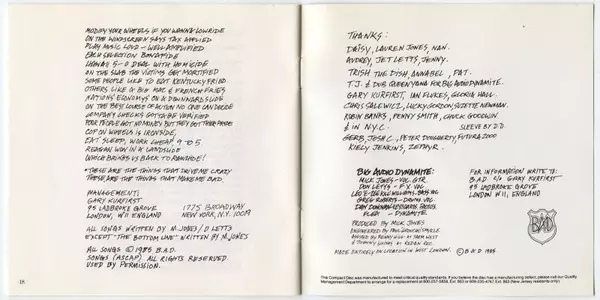 MODIFY YOUR WHEELS IF YOU WANNA LOWRIDE
ON THE WINDSCREEN SAYS TAX APPLIED
PLAY MUSIC LOUD - WELL AMPLIFIED
EACH SELECTION BONAFIDE
HAWAII 5-0 DEAL WITH HOMICIDE
ON THE SLAB THE VICTIMS GET MORTIFIED
SOME PEOPLE LIKE TO EAT KENTUCKY FRIED
OTHERS LIKE A BIG MAC & FRENCH FRIES
NATIONS' ECONOMYS ON A DOWNWARD SLIDE
ON THE BEST COURSE OF ACTION NO ONE CAN DECIDE
COMPANY CHECKS GOTTA BE VERIFIED
POOR PEOPLE GOT NO MONEY BUT THEY GOT THEIR PRIDE
COP ON WHEELS IS IRONSIDE,
EAT, SLEEP, WORK CHEAP 9 TO 5
REAGAN WON IN A LANDSLIDE
WHICH BRINGS US BACK TO RAWHIDE!
*THESE ARE THE THINGS THAT DRIVE ME CRAZY
THESE ARE THE THINGS THAT MAKE ME BAD
MANAGEMENT:
GARY KURFIRST
95 LADBROKE GROVE 1775 BROADWAY
LONDON, W11 ENGLAND NEW YORK, N.Y. 10019
ALL SONGS WRITTEN BY M. JONES / D LETTS
EXCEPT "THE BOTTOM LINE" WRITTEN BY M. JONES
ALL SONGS © 1985 B.A.D.
SONGS (ASCAP) ALL RIGHTS RESERVED.
USED BY PERMISSION.
THANKS:
DAISY, LAUREN JONES, NAN.
AUDREY, JET LETTS, JENNY.
TRISH THE DISH, ANNABEL, PAT.
T.J. & DUB FOR BIG AUDIO DYNAMITE.
GARY KURFIRST, IAN FLUKES, GLORIA HALL.
CHRIS SALEWICZ, LUCKY GORDON, SUZETTE NEWMAN.
ROBIN BANKS, PENNY SMITH, CHUCK GOODWIN.
& IN N.Y.C. SLEEVE BY D.D.
GERB, JOSE C., PETER DOUGHERTY, FUTURA 2000
KIELY JENKINS, ZEPHYR.
BIG AUDIO DYNAMITE:
MICK JONES - VOL. GTR.
DON LETTS - F.X. VOL.
LEO E-ZEE KILL WILLIAMS - BASS VOL
GREG ROBERTS - DRUMS VOL
DAN DONOVAN - KEYBOARDS PHOTOS
FLEA - DYNAMITE
PRODUCED BY MICK JONES
ENGINEERED BY PAUL GROUCHO SMYKLE
FOR INFORMATION WRITE TO:
B.A.D. c/o GARY KURFIRST
95 LADBROKE GROVE
LONDON W11, ENGLAND
BAD
MADE ENTIRELY ON LOCATION IN WEST LONDON. © B.A.D 1985
This Compact Disc was manufactured to meet critical quality standards. If you believe the disc has a manufacturing defect, please call our Quality
Management Department to arrange for a replacement at